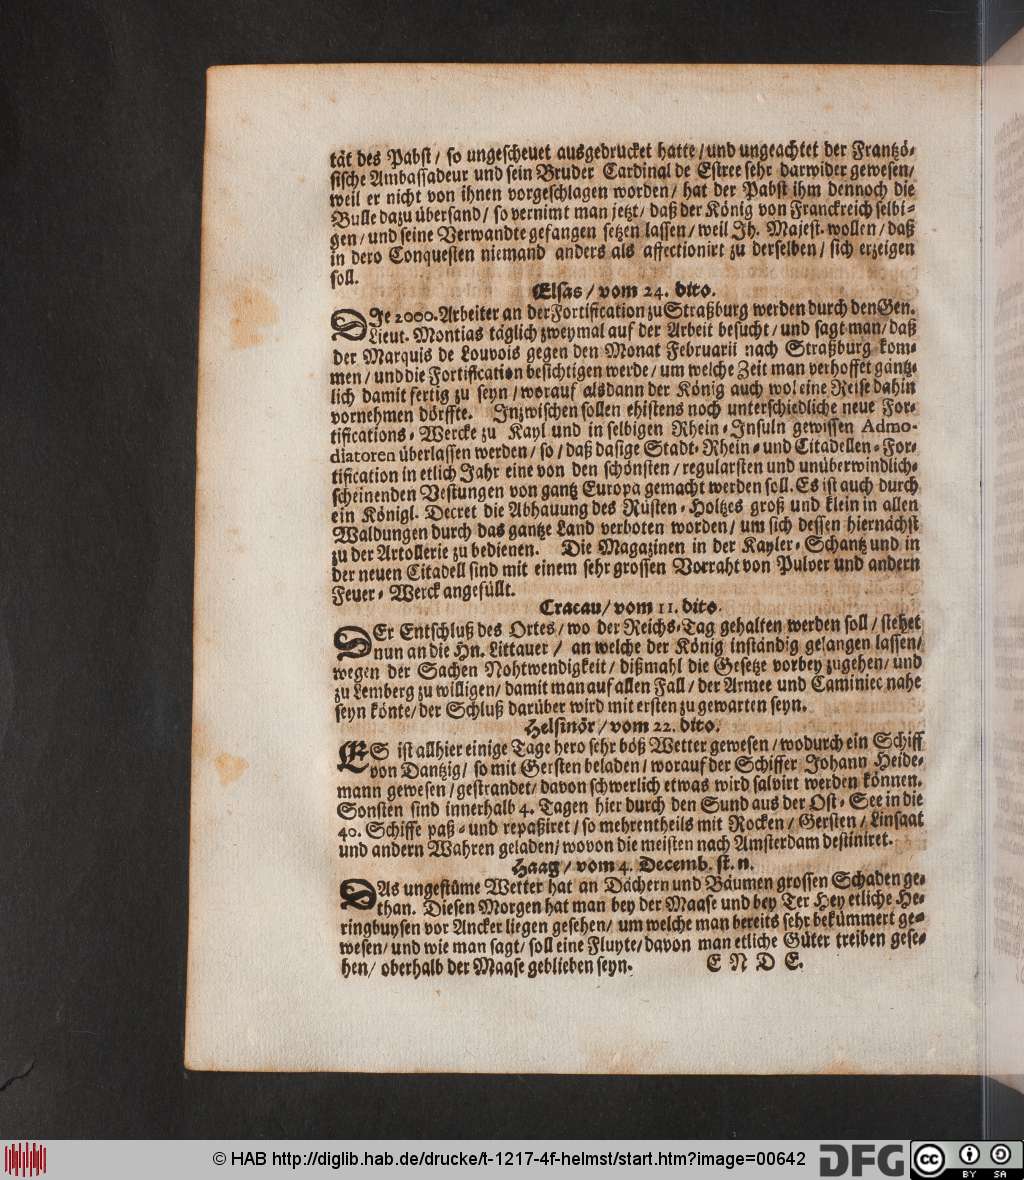 tät des Pabst / so ungescheuet ausgedrucket hatte / und ungeachtet der Frantzö-
sische Ambassadeur und sein Bruder Cardinal de Estree sehr darwider gewesen /
weil er nicht von ihnen vorgeschlagen worden / hat der Pabst ihm dennoch die
Bulle dazu übersand / so vernimt man jetzt / daß der König von Franckreich selbi-
gen / und seine Verwandte gefangen setzen lassen / weil Ih. Majest. wollen / daß
in dero Conquesten niemand anders als affectionirt zu derselben / sich erzeigen
soll.
Elsas / vom 24. dito.
DIe 2000. Arbeiter an der Fortification zu Straßburg werden durch den Gen.
Lieut. Montias täglich zweymal auf der Arbeit besucht / und sagt man / daß
der Marquis de Louvois gegen den Monat Februarii nach Straßburg kom-
men / und die Fortification besichtigen werde / um welche Zeit man verhoffet gäntz-
lich damit fertig zu seyn / worauf alsdann der König auch wol eine Reise dahin
vornehmen dörffte. Inzwischen sollen ehistens noch unterschiedliche neue For-
tifications-Wercke zu Kayl und in selbigen Rhein-Insuln gewissen Admo-
diatoren überlassen werden / so / daß dasige Stadt-Rhein- und Citadellen-For-
tification in etlich Jahr eine von den schönsten / regularsten und unüberwindlich-
scheinenden Vestungen von gantz Europa gemacht werden soll. Es ist auch durch
ein Königl. Decret die Abhauung des Rüsten-Holtzes groß und klein in allen
Waldungen durch das gantze Land verboten worden / um sich dessen hiernächst
zu der Artollerie zu bedienen. Die Magazinen in der Kayler-Schantz und in
der neuen Citadell sind mit einem sehr grossen Vorraht von Pulver und andern
Feuer-Werck angefüllt.
Cracau / vom 11. dito.
DEr Entschluß des Ortes / wo der Reichs-Tag gehalten werden soll / stehet
nun an die Hn. Littauer / an welche der König inständig gelangen lassen /
wegen der Sachen Nohtwendigkeit / dißmahl die Gesetze vorbey zugehen / und
zu Lemberg zu willigen / damit man auf allen Fall / der Armee und Caminiec nahe
seyn könte / der Schluß darüber wird mit ersten zu gewarten seyn.
Helsinör / vom 22. dito.
ES ist allhier einige Tage hero sehr böß Wetter gewesen / wodurch ein Schiff
von Dantzig / so mit Gersten beladen / worauf der Schiffer Johann Heide-
mann gewesen / gestrandet / davon schwerlich etwas wird salvirt werden können.
Sonsten sind innerhalb 4. Tagen hier durch den Sund aus der Ost-See in die
40. Schiffe paß- und repaßiret / so mehrentheils mit Rocken / Gersten / Linsaat
und andern Wahren geladen / wovon die meisten nach Amsterdam destiniret.
Haag / vom 4. Decemb. st. n.
DAs ungestüme Wetter hat an Dächern und Bäumen grossen Schaden ge-
than. Diesen Morgen hat man bey der Maase und bey Ter Hey etliche He-
ringbuysen vor Ancker liegen gesehen / um welche man bereits sehr bekümmert ge-
wesen / und wie man sagt / soll eine Fluyte / davon man etliche Güter treiben gese-
hen / oberhalb der Maase geblieben seyn. E N D E.
© HAB http://diglib.hab.de/drucke/t-1217-4f-helmst/start.htm?image=00642 DFG cc BY SA